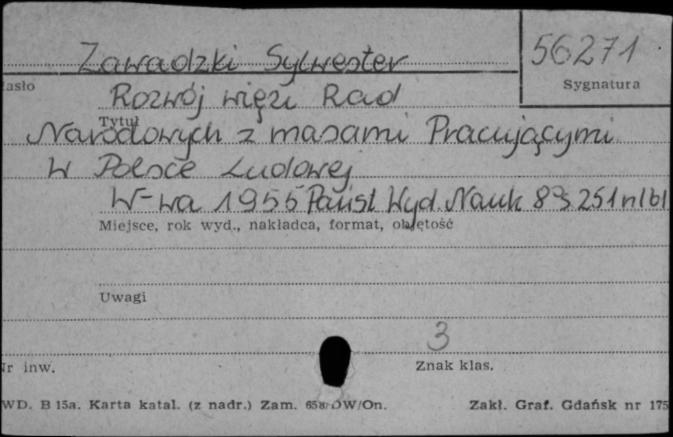 Zawadzki Sylwester 56271
asło Sygnatura
Rozwój więzi Rad
Tytuł
Narodowych z masami Pracującymi
w Polsce Ludowej
W-wa 1955 Państ Wyd. Nauk 8° s 251 nlb1
Miejsce, rok wyd., nakładca, format, objętość
Uwagi
3
r inw. Znak klas.
WD. B 15a. Karta katal. (z nadr.) Zam. OW/On. Zakł. Graf. Gdańsk nr 175